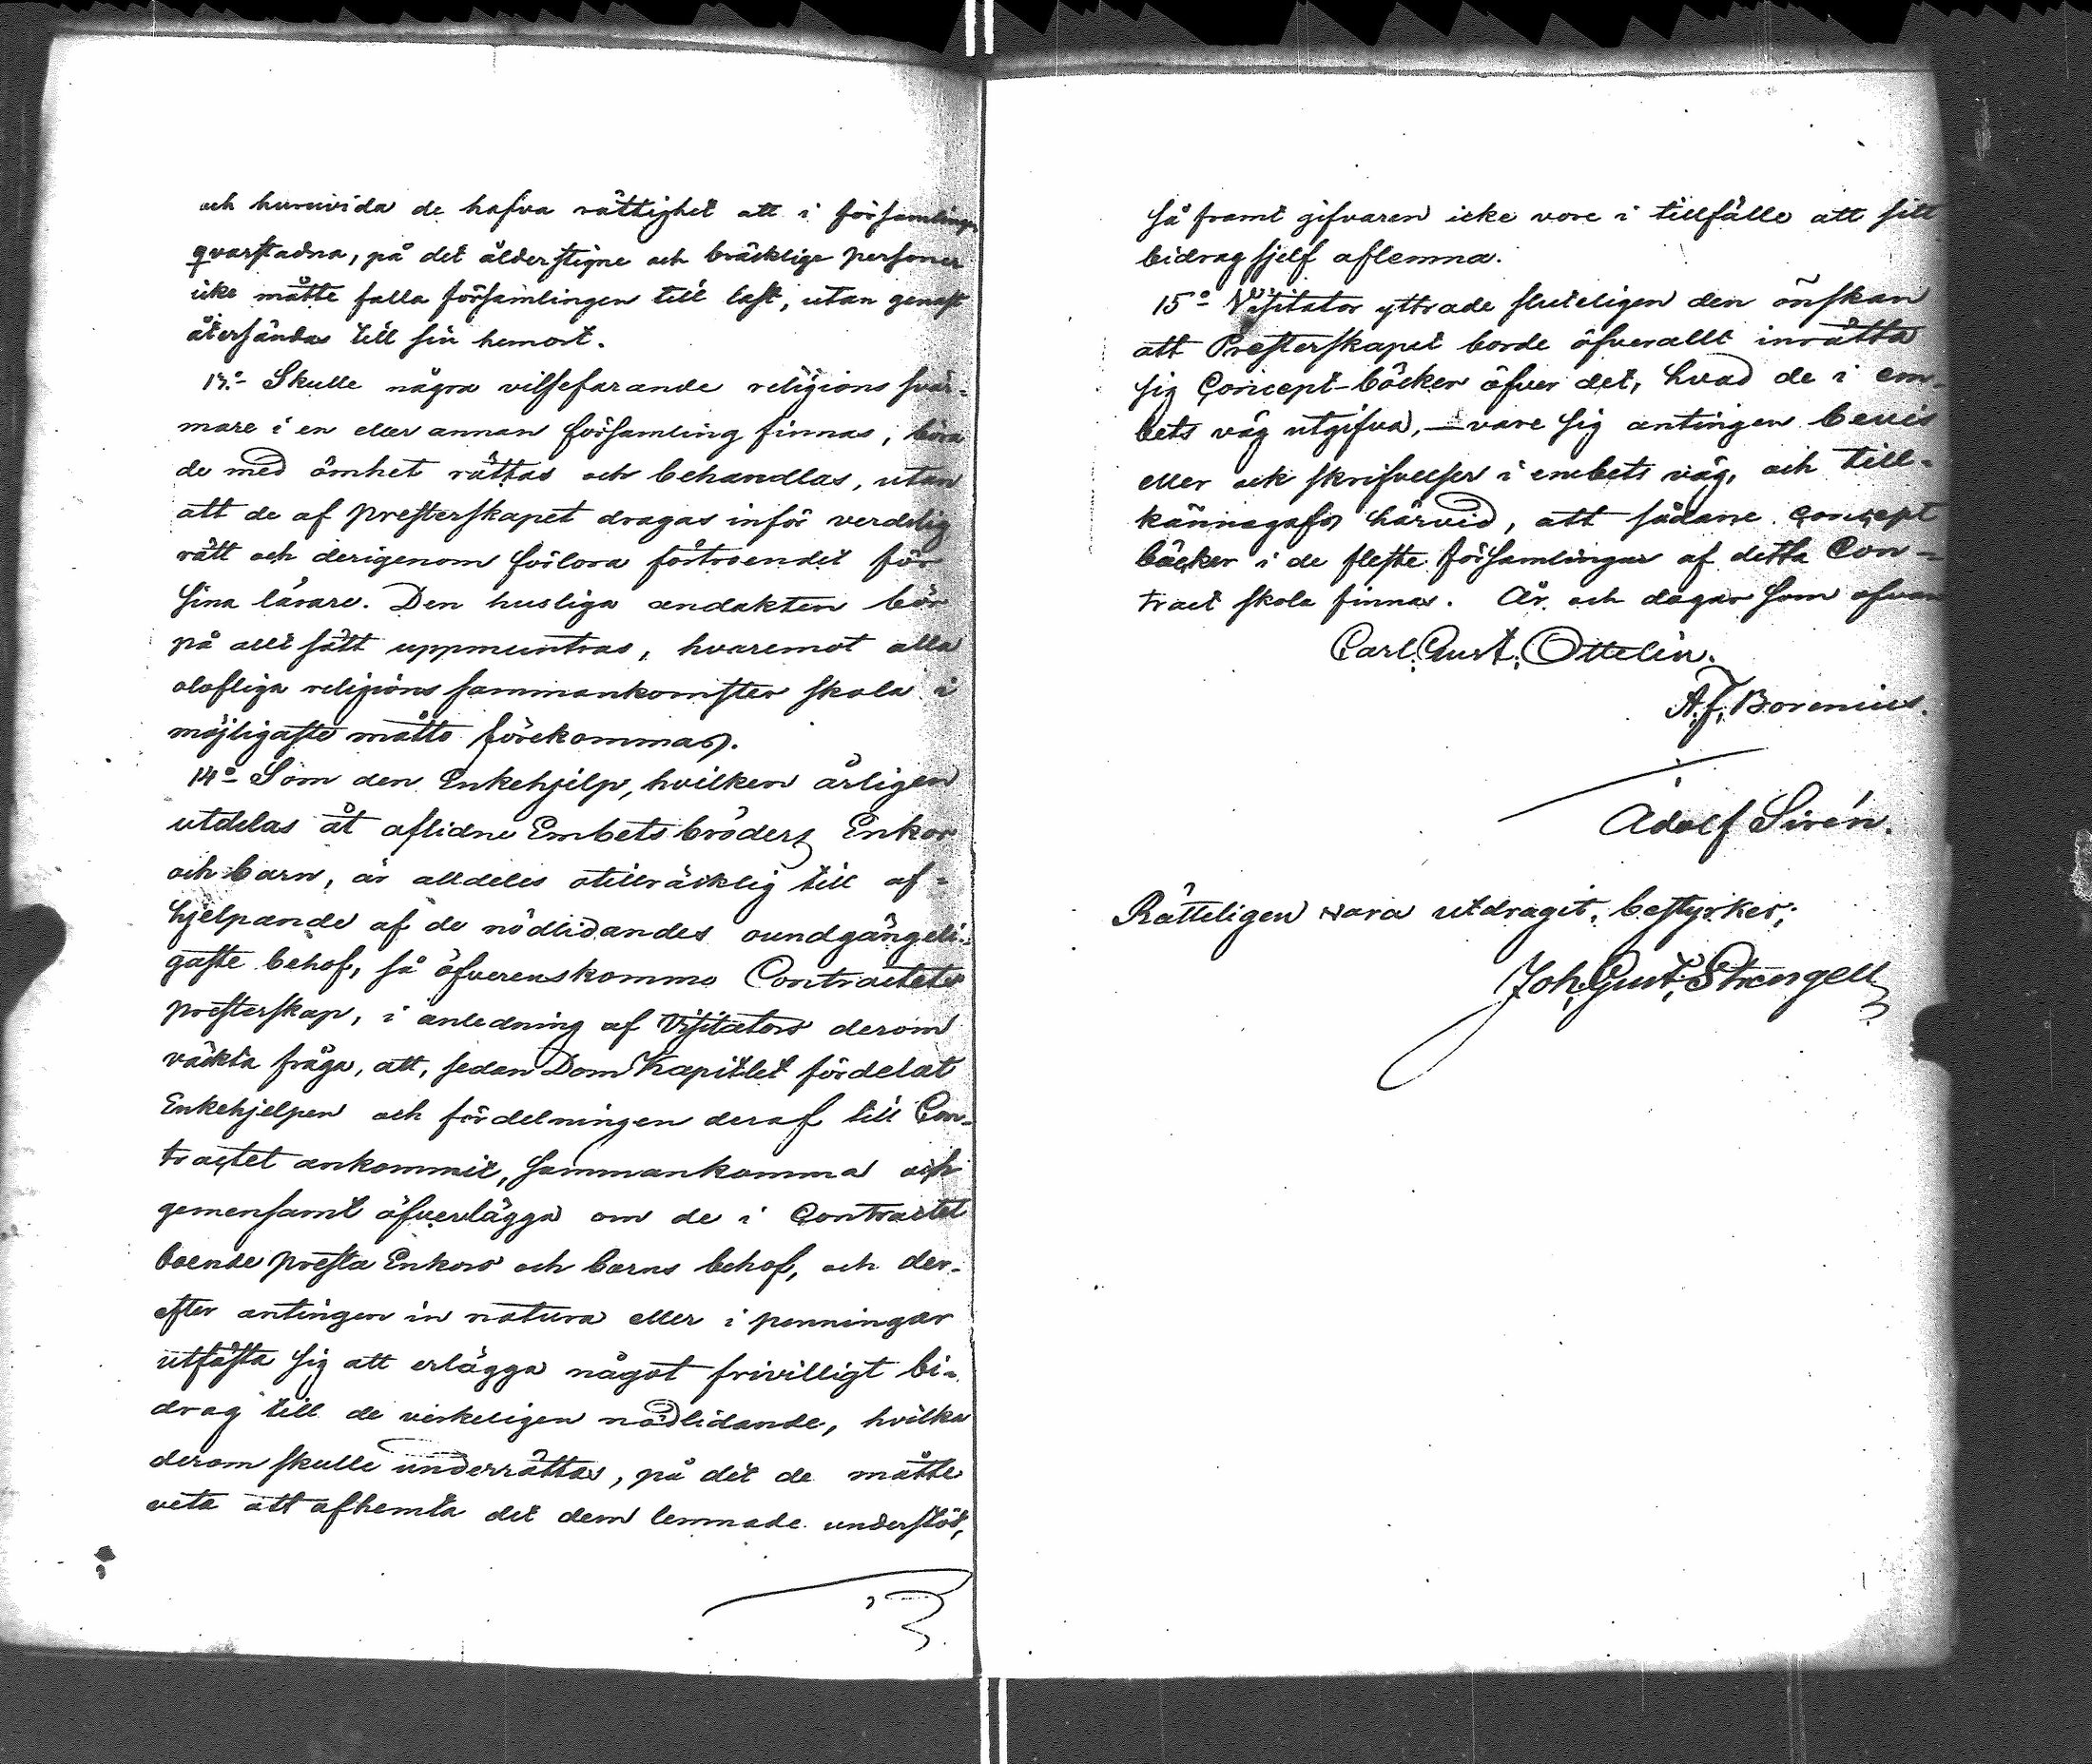 och huruvida de hafva rättighet att i församlingen
qvarstadna, på det ålderstigne och bräcklige personer
icke måtte falla församlingen till last, utan genast
återsändas till sin hemort.
13:o Skulle några vilsefarande religions svär-
mare i en eller annan församling finnas, böra
de med ömhet rättas och behandlas, utan
att de af presterskapet dragas inför verdslig
rätt och derigenom förlora förtroendet för
sina lärare. Den husliga andakten bör
på allt sätt uppmuntras, hvaremot alla
olofliga religions sammankomster skola i
möjligaste måtto förekommas.
14:o Som den Enkehjelp, hvilken årligen
utdelas åt aflidne Embetsbröders Enkor
och barn, är alldeles otillräcklig till af-
hjelpande af de nödlidandes oundgängeli-
gaste behof, så öfverenskommo Contractets
presterskap, i anledning af Visitators derom
väckta fråga, att, sedan Dom Kapitlet fördelat
Enkehjelpen och fördelningen deraf till Con-
tractet ankommit, sammankomma och
gemensamt öfverlägga om de i Contractet
boende presta Enkors och barns behof, och der-
efter antingen in natura eller i penningar
utfästa sig att erlägga något frivilligt bi-
drag till de verkeligen nödlidande, hvilka
derom skulle underrättas, på det de måtte
veta att afhemta det dem lemnade understöd,
så framt gifvaren icke vore i tillfälle att sitt
bidrag sjelf aflemna.
15:o Visitator yttrade sluteligen den önskan
att Presterskapet borde öfverallt inrätta
sig Concept-böcker öfver det, hvad de i em-
bets väg utgifva, — vare sig antingen bevis
eller ock skrifvelser i embets väg, och till-
kännagafs härvid, att sådane concept
böcker i de fleste församlingar af detta Con-
tract skola finnas. År och dagar som ofvan
Carl Gust. Ottelin.
A. F. Borenius.
Adolf Sirén.
Rätteligen vara utdragit, bestyrker;
Joh. Gust. Strengell